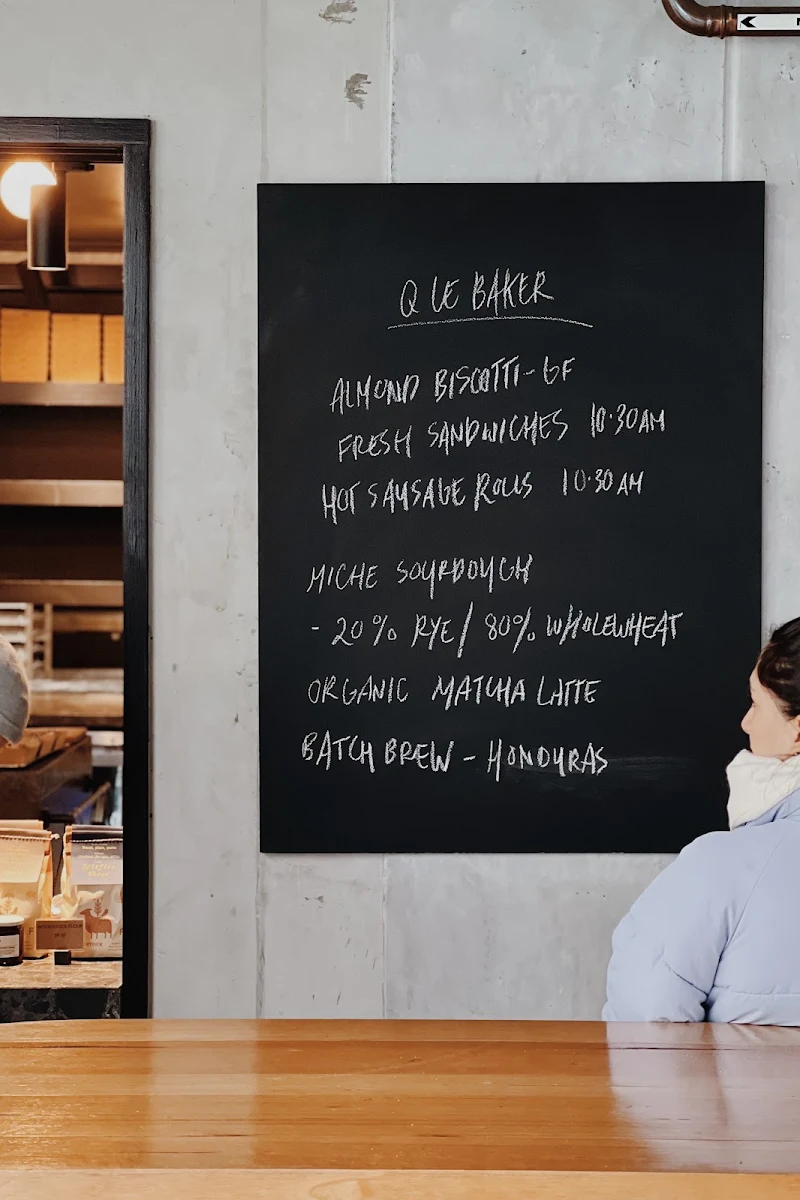 Q LE BAKER
ALMOND BISCOTTI - GF
FRESH SANDWICHES 10·30AM
HOT SAUSAGE ROLLS 10·30AM
MICHE SOURDOUGH
- 20% RYE / 80% WHOLEWHEAT
ORGANIC MATCHA LATTE
BATCH BREW - HONDURAS